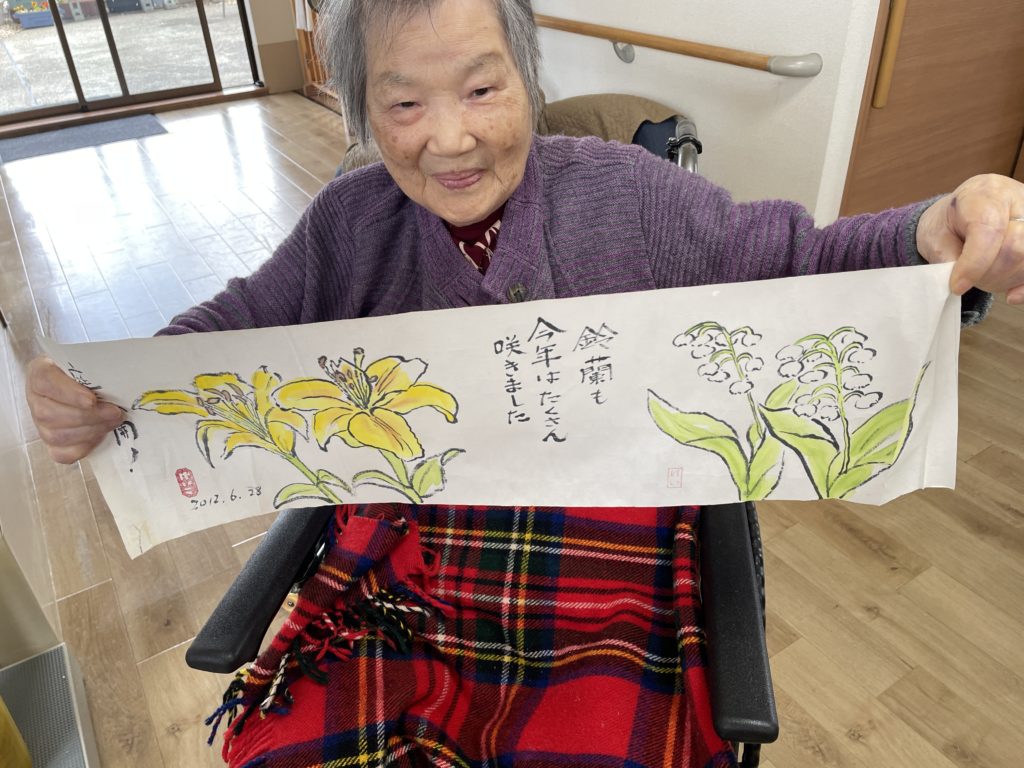 鈴蘭も
今年はたくさん
咲きました
開!
2012.6.28